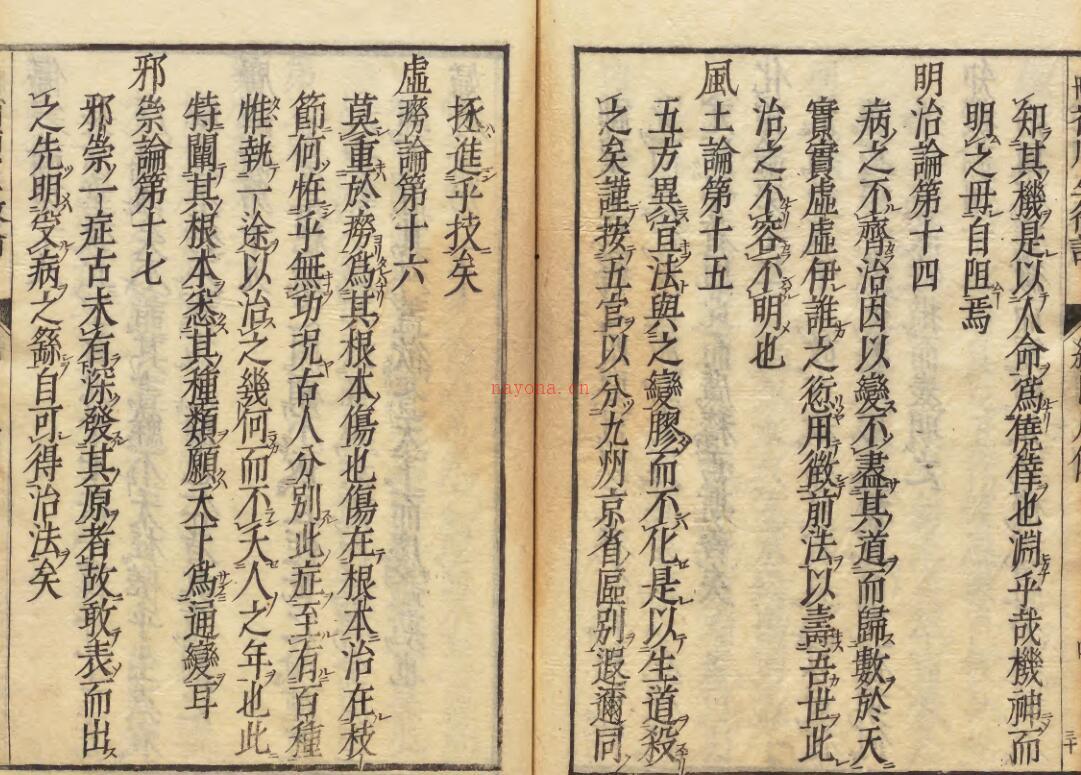 知其機是以人命爲僥倖也淵乎哉機神而
明之毋自阻焉
明治論第十四
病之不齊治因以變不盡其道而歸數於天
實實虛虛伊誰之愆用徴前法以壽吾世此
治之不容不明也
風土論第十五
五方異宜法與之變膠而不化是以生道殺
之矣謹按五官以分九州京省區別遐邇同
拯進乎技矣
虛癆論第十六
莫重於癆爲其根本傷也傷在根本治在枝
節何怪乎無功況古人分別此症至有百種
惟執一途以治之幾何而不夭人之年也此
特闡其根本悉其種類願天下爲通變耳
邪祟論第十七
邪祟一症古未有深發其原者故敢表而出
之先明受病之繇自可得治法矣
三十
nayona.cn